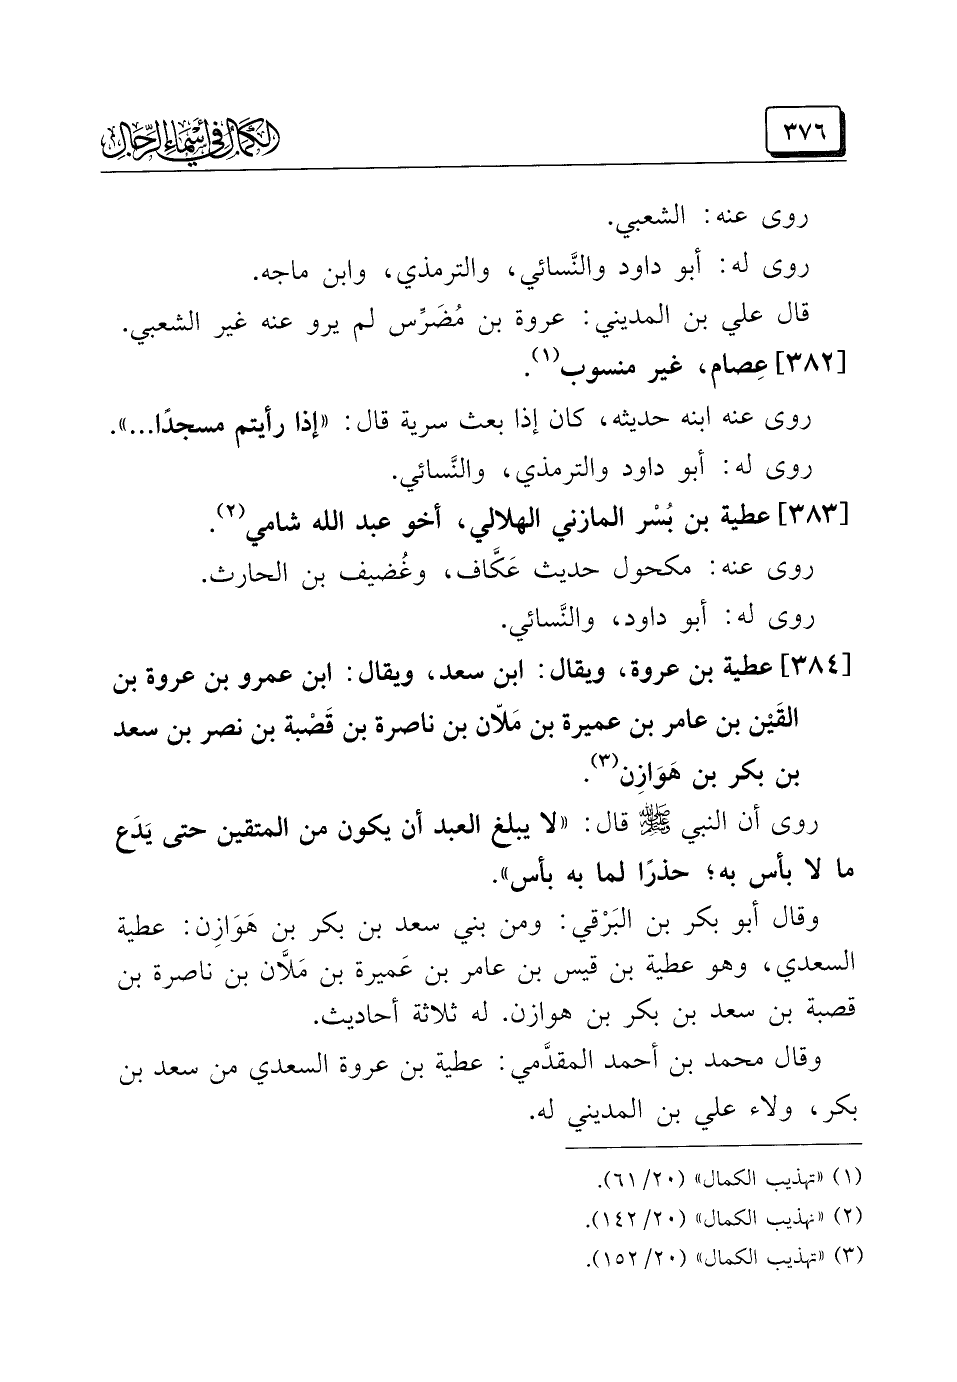 ٣٧٦
الكمال في أسماء الرجال
روى عنه: الشعبي.
روى له: أبو داود والنَّسائي، والترمذي، وابن ماجه.
قال علي بن المديني: عروة بن مُضَرِّس لم يرو عنه غير الشعبي.
[٣٨٢] عِصام، غير منسوب(١).
روى عنه ابنه حديثه، كان إذا بعث سرية قال: «إذا رأيتم مسجدًا...».
روى له: أبو داود والترمذي، والنَّسائي.
[٣٨٣] عطية بن بُسْر المازني الهلالي، أخو عبد الله شامي(٢).
روى عنه: مكحول حديث عَكَّاف، وغُضيف بن الحارث.
روى له: أبو داود، والنَّسائي.
[٣٨٤] عطية بن عروة، ويقال: ابن سعد، ويقال: ابن عمرو بن عروة بن
القَيْن بن عامر بن عميرة بن مَلّان بن ناصرة بن قَصْبة بن نصر بن سعد
بن بكر بن هَوَازِن(٣).
روى أن النبي ﷺ قال: «لا يبلغ العبد أن يكون من المتقين حتى يَدَع
ما لا بأس به؛ حذرًا لما به بأس».
وقال أبو بكر بن البَرْقي: ومن بني سعد بن بكر بن هَوَازِن: عطية
السعدي، وهو عطية بن قيس بن عامر بن عَميرة بن مَلَّان بن ناصرة بن
قصبة بن سعد بن بكر بن هوازن. له ثلاثة أحاديث.
وقال محمد بن أحمد المقدَّمي: عطية بن عروة السعدي من سعد بن
بكر، ولاء علي بن المديني له.
(١) «تهذيب الكمال» (٢٠/ ٦١).
(٢) «تهذيب الكمال» (٢٠/ ١٤٢).
(٣) «تهذيب الكمال» (٢٠/ ١٥٢).